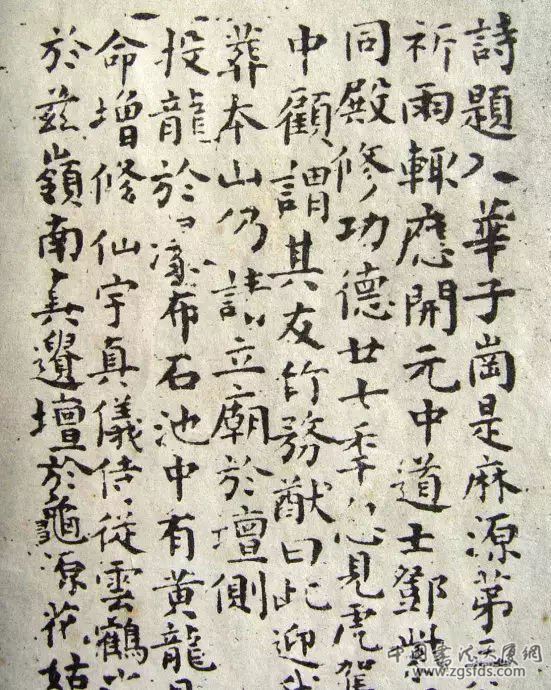 詩題入華子崗是麻源第三
祈雨輒應開元中道士鄧紫
同殿修功德廿七秊忽見虎駕
中顧謂其友竹務猷曰此迎我
葬本山仍請立廟於壇側
投龍於瀑布石池中有黃龍見
命增修仙宇真儀侍從雲鶴
於兹嶺南真遺壇於龜源花姑
中国书法大厦网
www.zgsfds.com